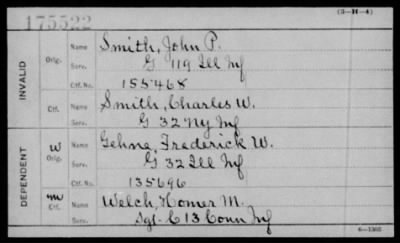 175522
(3-H-4)
INVALID
Orig.
Name
Smith, John P.
Serv.
G 119 Ill Inf
Ctf. No.
155468
Ctf.
Name
Smith, Charles W.
Serv.
G 32 Ny Inf
DEPENDENT
W
Orig.
Name
Gehne, Frederick W.
Serv.
G 32 Ill Inf
Ctf. No.
135696
Ctf.
Name
Welch, Homer M.
Serv.
Sgt. C 13 Conn Inf